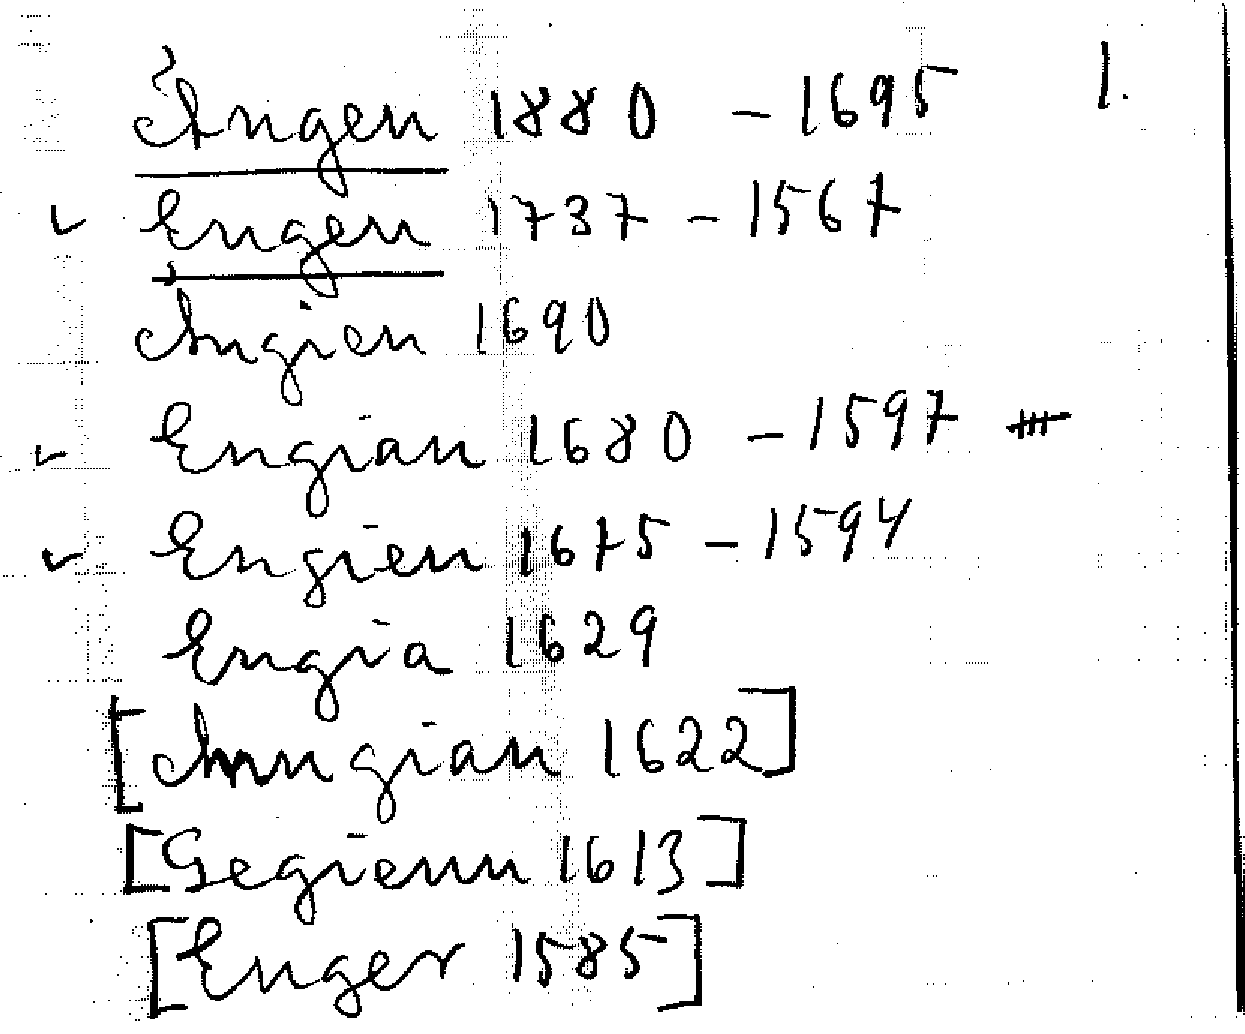 Ängen 1880 - 1695 1.
✓ Engen 1737 - 1567
Ängien 1690
✓ Engian 1680 - 1597
✓ Engien 1675 - 1594
Engia 1629
[Ämngian 1622]
[Gegienn 1613]
[Enger 1585]